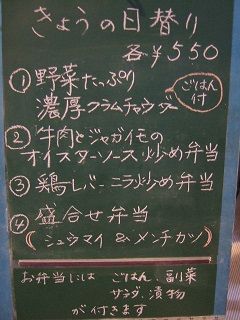 きょうの日替り
各¥550
①野菜たっぷり
濃厚クラムチャウダー
ごはん付
②牛肉とジャガイモの
オイスターソース炒め弁当
③鶏レバーニラ炒め弁当
④盛合せ弁当
(シュウマイ&メンチカツ)
お弁当には ごはん、副菜
サラダ、漬物
が付きます